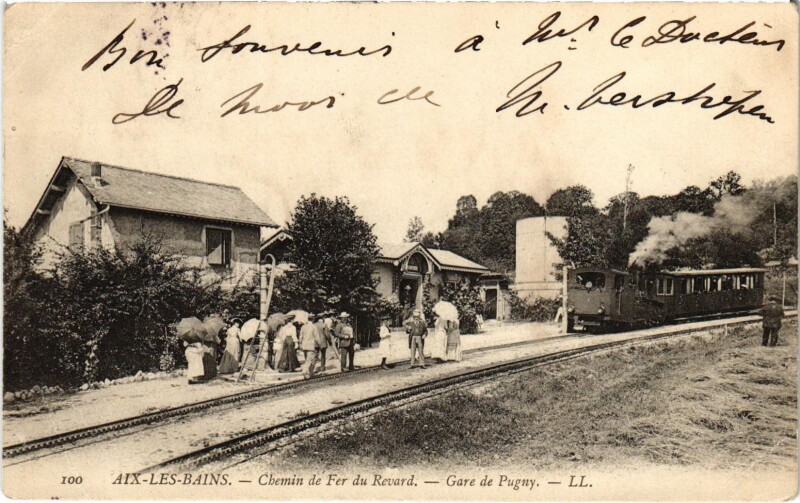 Bon souvenir à Mr le Docteur
De moor de M. Verschepen
100 AIX-LES-BAINS. — Chemin de Fer du Revard. — Gare de Pugny. — LL.